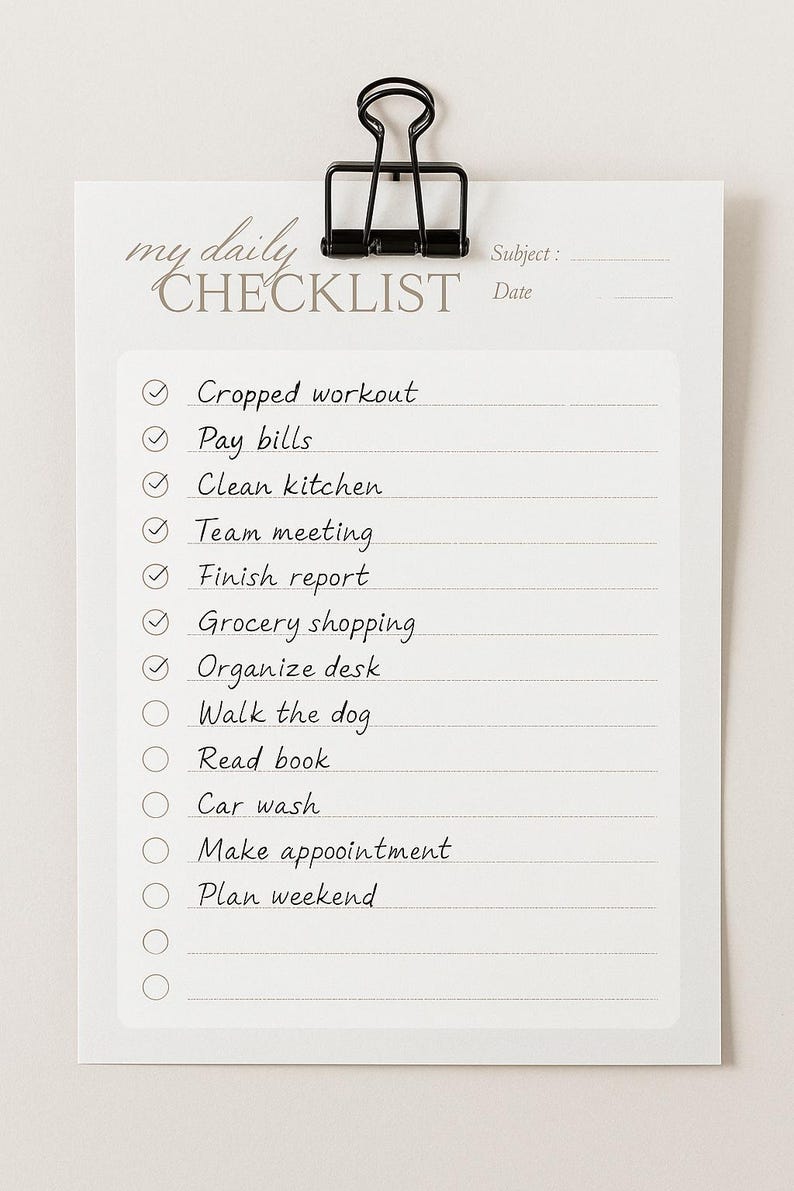 my daily
CHECKLIST
Subject :
Date
Cropped workout
Pay bills
Clean kitchen
Team meeting
Finish report
Grocery shopping
Organize desk
Walk the dog
Read book
Car wash
Make appoointment
Plan weekend